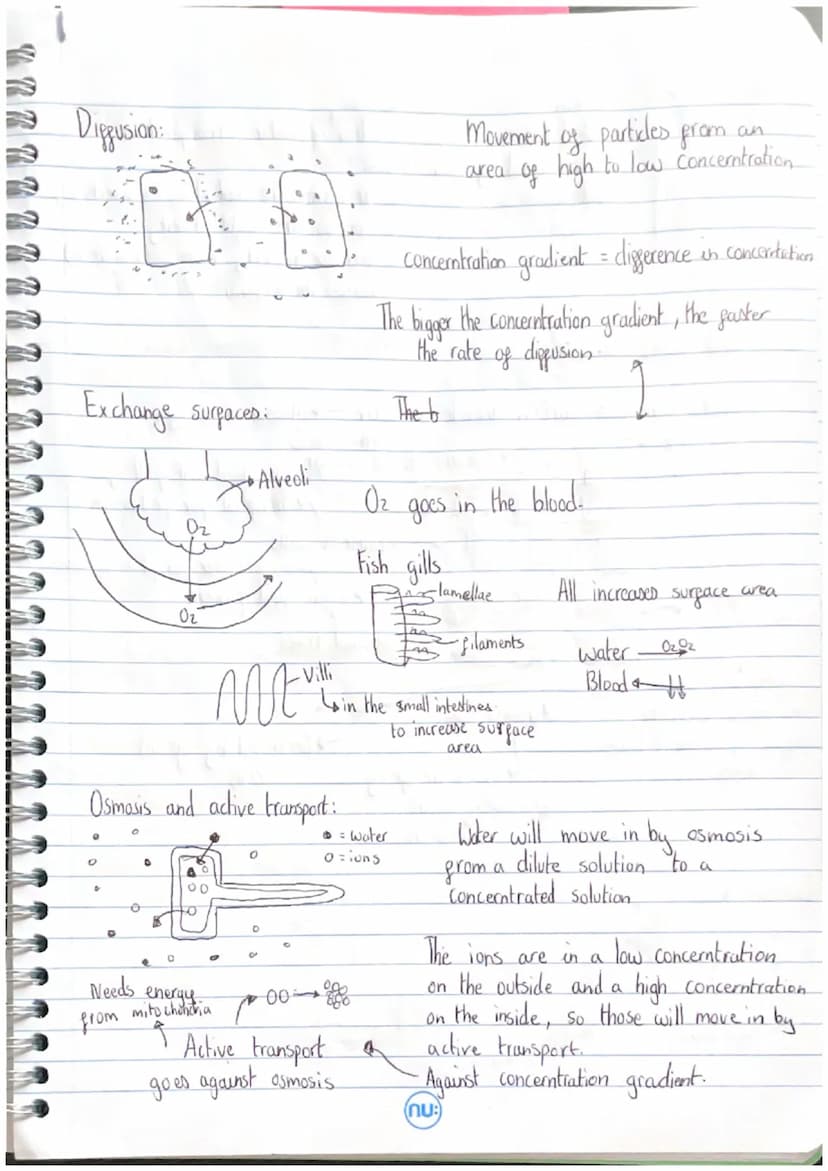 Diffusion:
Movement of particles from an
area of high to low concerntration
concerntration gradient = difference in concerntration
The bigger the concerntration gradient, the faster
the rate of diffusion
Exchange surfaces:
The b
Alveoli
O2
O2
O2 goes in the blood.
Fish gills
lamellae
filaments
All increased surface area
Water O2O2
Blood
Villi
in the small intestines
to increase surface
area
Osmosis and active transport:
= water
O = ions
Water will move in by osmosis
from a dilute solution to a
concerntrated solution
The ions are in a low concerntration
on the outside and a high concerntration
on the inside, so those will move in by
active transport.
Against concerntration gradient.
Needs energy
from mitochondria
Active transport
goes against osmosis
nu: